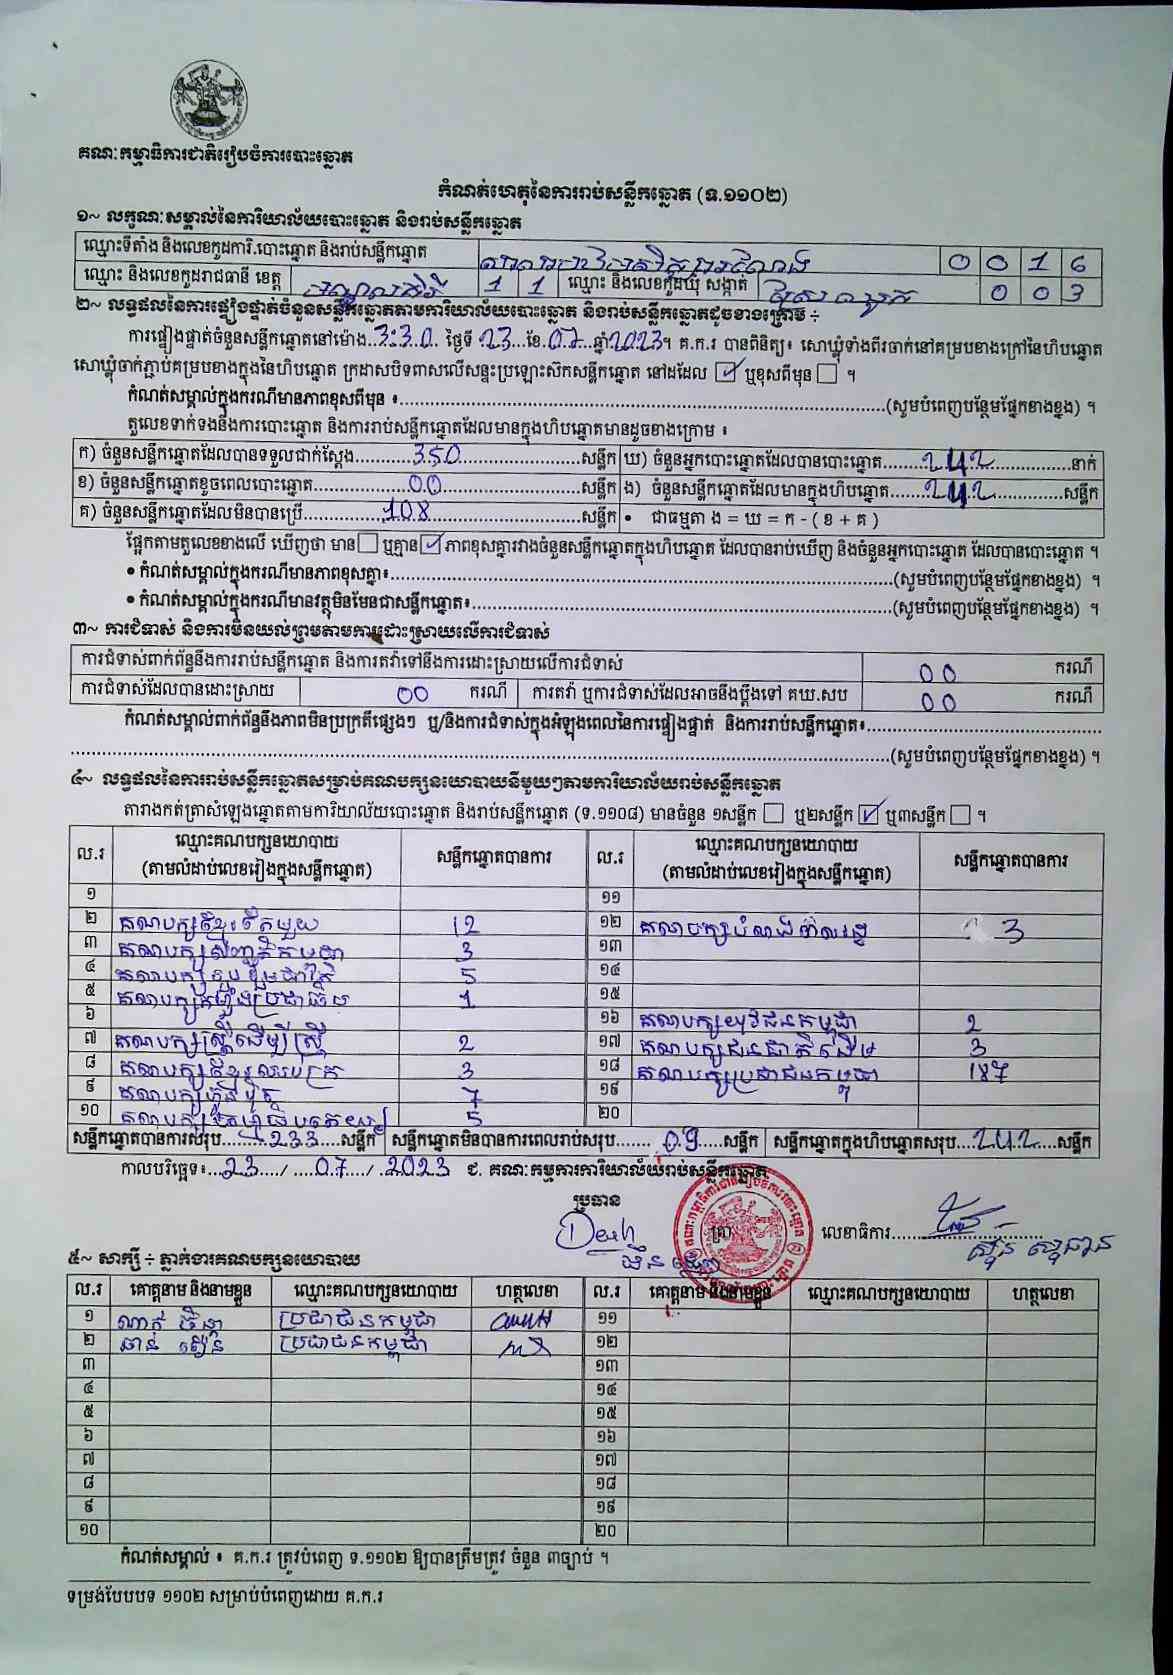 គណៈកម្មាធិការជាតិរៀបចំការបោះឆ្នោត
កំណត់ហេតុនៃការរាប់សន្លឹកឆ្នោត (ទ.១១០២)
១~ លក្ខណៈសម្គាល់នៃការិយាល័យបោះឆ្នោត និងរាប់សន្លឹកឆ្នោត
ឈ្មោះទីតាំង និងលេខកូដការិ.បោះឆ្នោត និងរាប់សន្លឹកឆ្នោត 0 0 1 6
ឈ្មោះ និងលេខកូដរាជធានី ខេត្ត មណ្ឌលគិរី 1 1 ឈ្មោះ និងលេខកូដឃុំ សង្កាត់ 0 0 3
២~ លទ្ធផលនៃការផ្ទៀងផ្ទាត់ចំនួនសន្លឹកឆ្នោតតាមការិយាល័យបោះឆ្នោត និងរាប់សន្លឹកឆ្នោតដូចខាងក្រោម ÷
ការផ្ទៀងផ្ទាត់ចំនួនសន្លឹកឆ្នោតនៅម៉ោង..3:30. ថ្ងៃទី.23...ខែ.07...ឆ្នាំ2023។ គ.ក.រ បានពិនិត្យ៖ សោឃ្លុំទាំងពីរចាក់នៅគម្របខាងក្រៅនៃហិបឆ្នោត
សោឃ្លុំចាក់ភ្ជាប់គម្របខាងក្នុងនៃហិបឆ្នោត ក្រដាសបិទពាសលើសន្ទះប្រឡោះសិកសន្លឹកឆ្នោត នៅដដែល ☑ ឬខុសពីមុន ☐ ។
កំណត់សម្គាល់ក្នុងករណីមានភាពខុសពីមុន ៖..........(សូមបំពេញបន្ថែមផ្នែកខាងខ្នង) ។
តួលេខទាក់ទងនឹងការបោះឆ្នោត និងការរាប់សន្លឹកឆ្នោតដែលមានក្នុងហិបឆ្នោតមានដូចខាងក្រោម ៖
ក) ចំនួនសន្លឹកឆ្នោតដែលបានទទួលជាក់ស្តែង..........350..........សន្លឹក ឃ) ចំនួនអ្នកបោះឆ្នោតដែលបានបោះឆ្នោត........242..........នាក់
ខ) ចំនួនសន្លឹកឆ្នោតខូចពេលបោះឆ្នោត..........00..........សន្លឹក ង) ចំនួនសន្លឹកឆ្នោតដែលមានក្នុងហិបឆ្នោត.......242..........សន្លឹក
គ) ចំនួនសន្លឹកឆ្នោតដែលមិនបានប្រើ..........108..........សន្លឹក • ជាធម្មតា ង = ឃ = ក - ( ខ + គ )
ផ្អែកតាមតួលេខខាងលើ ឃើញថា មាន☐ ឬគ្មាន☑ ភាពខុសគ្នារវាងចំនួនសន្លឹកឆ្នោតក្នុងហិបឆ្នោត ដែលបានរាប់ឃើញ និងចំនួនអ្នកបោះឆ្នោត ដែលបានបោះឆ្នោត ។
• កំណត់សម្គាល់ក្នុងករណីមានភាពខុសគ្នា៖..........(សូមបំពេញបន្ថែមផ្នែកខាងខ្នង) ។
• កំណត់សម្គាល់ក្នុងករណីមានវត្ថុមិនមែនជាសន្លឹកឆ្នោត៖..........(សូមបំពេញបន្ថែមផ្នែកខាងខ្នង) ។
៣~ ការជំទាស់ និងការមិនយល់ព្រមតាមការដោះស្រាយលើការជំទាស់
ការជំទាស់ពាក់ព័ន្ធនឹងការរាប់សន្លឹកឆ្នោត និងការតវ៉ាទៅនឹងការដោះស្រាយលើការជំទាស់ 00 ករណី
ការជំទាស់ដែលបានដោះស្រាយ 00 ករណី ការតវ៉ា ឬការជំទាស់ដែលអាចនឹងប្តឹងទៅ គឃ.សប 00 ករណី
កំណត់សម្គាល់ពាក់ព័ន្ធនឹងភាពមិនប្រក្រតីផ្សេងៗ ឬ/និងការជំទាស់ក្នុងអំឡុងពេលនៃការផ្ទៀងផ្ទាត់ និងការរាប់សន្លឹកឆ្នោត៖..........
..........(សូមបំពេញបន្ថែមផ្នែកខាងខ្នង) ។
៤~ លទ្ធផលនៃការរាប់សន្លឹកឆ្នោតសម្រាប់គណបក្សនយោបាយនីមួយៗតាមការិយាល័យរាប់សន្លឹកឆ្នោត
តារាងកត់ត្រាសំឡេងឆ្នោតតាមការិយាល័យបោះឆ្នោត និងរាប់សន្លឹកឆ្នោត (ទ.១១០៨) មានចំនួន ១សន្លឹក ☐ ឬ២សន្លឹក ☑ ឬ៣សន្លឹក ☐ ។
ល.រ ឈ្មោះគណបក្សនយោបាយ (តាមលំដាប់លេខរៀងក្នុងសន្លឹកឆ្នោត) សន្លឹកឆ្នោតបានការ ល.រ ឈ្មោះគណបក្សនយោបាយ (តាមលំដាប់លេខរៀងក្នុងសន្លឹកឆ្នោត) សន្លឹកឆ្នោតបានការ
១ ១១
២ គណបក្សខ្មែរតែមួយ 12 ១២ គណបក្ស 3
៣ គណបក្ស 3 ១៣
៤ គណបក្ស 5 ១៤
៥ គណបក្ស 1 ១៥
៦ ១៦ គណបក្សយុវជនកម្ពុជា 2
៧ គណបក្សស្រ្តីដើម្បីស្រ្តី 2 ១៧ គណបក្សជនជាតិដើម 3
៨ គណបក្សខ្មែរ 3 ១៨ គណបក្សប្រជាជនកម្ពុជា 187
៩ គណបក្ស 7 ១៩
១០ គណបក្ស 5 ២០
សន្លឹកឆ្នោតបានការសរុប......233....សន្លឹក សន្លឹកឆ្នោតមិនបានការពេលរាប់សរុប.......09....សន្លឹក សន្លឹកឆ្នោតក្នុងហិបឆ្នោតសរុប....242....សន្លឹក
កាលបរិច្ឆេទ៖...23..../....07..../.2023 ជ. គណៈកម្មការការិយាល័យរាប់សន្លឹកឆ្នោត
ប្រធាន
ត្រា លេខាធិការ
៥~ សាក្សី ÷ ភ្នាក់ងារគណបក្សនយោបាយ
ល.រ គោត្តនាម និងនាមខ្លួន ឈ្មោះគណបក្សនយោបាយ ហត្ថលេខា ល.រ គោត្តនាម និងនាមខ្លួន ឈ្មោះគណបក្សនយោបាយ ហត្ថលេខា
១ ប្រជាជនកម្ពុជា ១១
២ ប្រជាជនកម្ពុជា ១២
៣ ១៣
៤ ១៤
៥ ១៥
៦ ១៦
៧ ១៧
៨ ១៨
៩ ១៩
១០ ២០
កំណត់សម្គាល់ ៖ គ.ក.រ ត្រូវបំពេញ ទ.១១០២ ឱ្យបានត្រឹមត្រូវ ចំនួន ៣ច្បាប់ ។
ទម្រង់បែបបទ ១១០២ សម្រាប់បំពេញដោយ គ.ក.រ